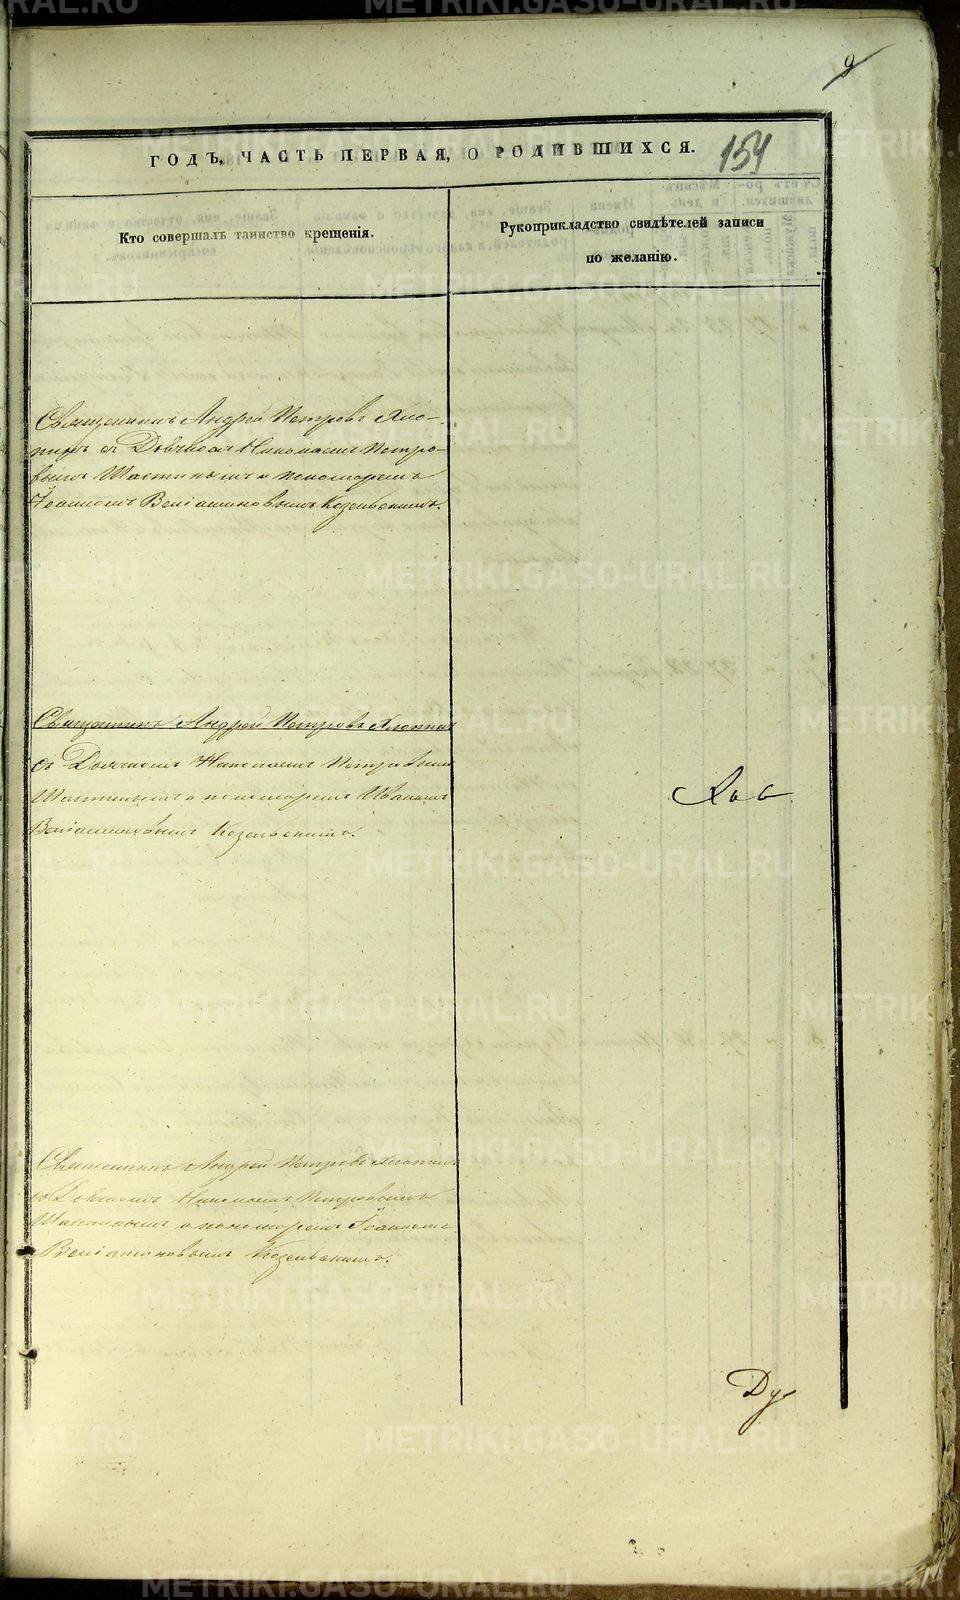 9
ГОДЪ, ЧАСТЬ ПЕРВАЯ, О РОДИВШИХСЯ. 154
Кто совершалъ таинство крещенія.
Рукоприкладство свидѣтелей записи
по желанію.
Священникъ Андрей Петровъ Хло-
пинъ съ Дьячкомъ Николаемъ Петро-
вымъ Шастинымъ и пономаремъ
Іоанномъ Веніаминовымъ Козельскимъ.
Священникъ Андрей Петровъ Хлопинъ
съ Дьячкомъ Николаемъ Петровымъ
Шастинымъ и пономаремъ Иваномъ
Веніаминовымъ Козельскимъ.
Священникъ Андрей Петровъ Хлопинъ
съ Дьячкомъ Николаемъ Петровымъ
Шастинымъ и пономаремъ Іоанномъ
Веніаминовымъ Козельскимъ.
Ду
METRIKI.GASO-URAL.RU